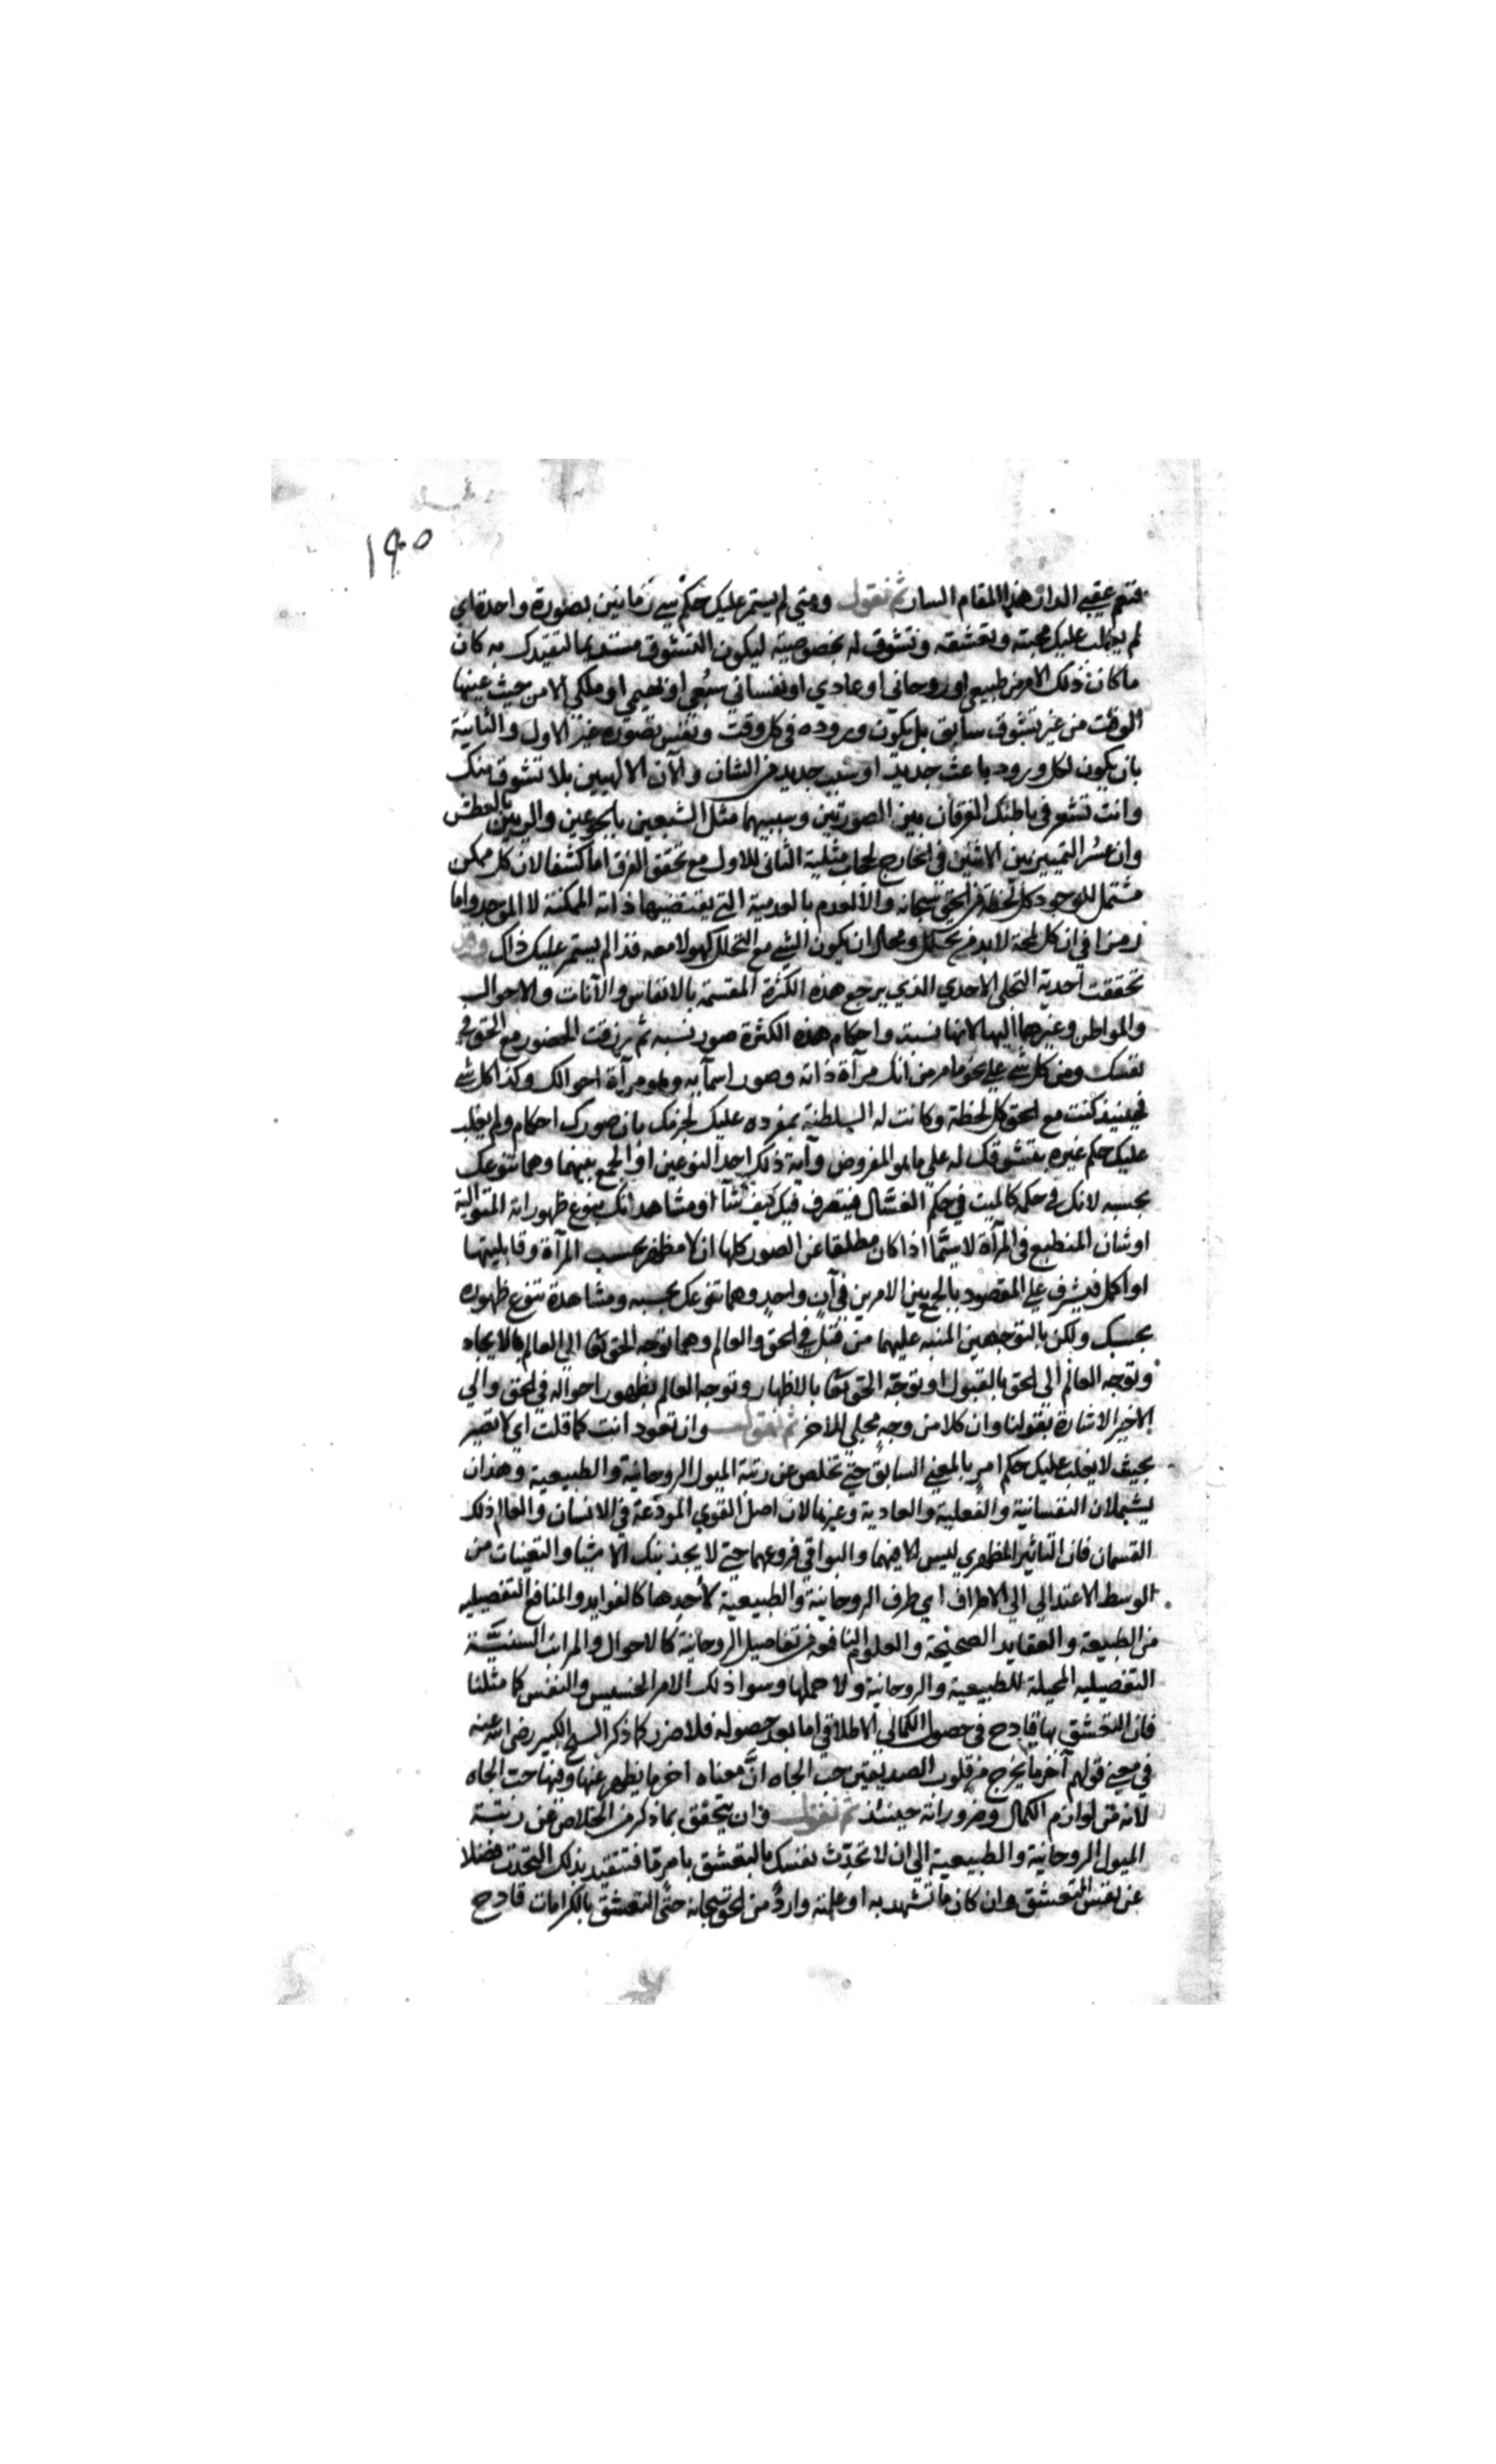 ١٩٥
فنعم عقبى الدار هذا المقام السار ثم نقول ومتى لم يستمر عليك حكم شيء زمانين بصورة واحدة اي
لم يغلب عليك محبته وتعشقه وتشوق له بخصوصيته ليكون التشوق التقيدك به كان
ما كان ذلك الامر طبيعي او روحاني او عادي او نفساني سبعي او بهيمي او ملكي الا من حيث عينها
الوقت من غير تشوق سابق بل يكون وروده في كل وقت ونفس بصورة غير الاول والثانية
بان يكون لكل ورود باعث جديد او سبب جديد من الشان والآن الالهيين بلا تشوق منك
وانت تشعر في باطنك الفرقان بين الصورتين وسببيهما مثل الشبعين بالجوعين والريين بالعطش
وان عسر التمييز بين الاثنين في الخارج لحجاب مثلية الثاني للاول مع تحقق الفرق اما كشفا لان كل ممكن
مشتمل للوجود كل لحظة من الحق سبحانه والا لعدم بالعدمية التي يقتضيها ذاته الممكنة لا الموجد واما
رمزا في ان كل لمحة لابد من تحلل ومحال ان يكون الشيء مع التحلل كهو لا معه فذا لم يستمر عليك ذاك
تحققت احدية التجلي الاحدي الذي يرجع هذه الكثرة المقسمة بالانفاس والآنات والاحوال
والمواطن وغيرها اليها لانها نسبت واحكام هذه الكثرة صور نسبه ثم رزقت الحضور مع الحق في
نفسك ومن كل شيء على نحو ما مر من انك مرآة ذاته وصور اسمآيه وهو مرآة احوالك وكذا كل شيء
فحينئذ كنت مع الحق كل لحظة وكانت له السلطنة بمفرده عليك بان صورك احكام ولم يغلب
عليك حكم غيره بتشوقك له على ما هو المفروض وآية ذلك احد النوعين او الجمع بينهما وهما تنوعك
بحسبه لانك في حكمه كالميت في حكم الغسال فيتصرف فيك كيف شآ او مشاهدانك بتنوع ظهوراته المتوالية
او شان المنطبع في المرآة لا سيما اذا كان مطلقا عن الصور كلها ان لا مظهر بحسب المرآة وقابليتها
او اكمل فيشرف على المقصود بالجمع بين الامرين في آن واحد وهما تنوعك بحسبه ومشاهدة تنوع ظهوره
بحسبك ولكن بالتوجهين المنبه عليهما من قبل في الحق والعالم وهما توجه الحق تعا الى العالم بالايجاد
وتوجه العالم الى الحق بالقبول او توجه الحق تعا بالاظهار وتوجه العالم بظهور احواله في الحق والى
الاخير الاشارة بقولنا وان كلا من وجه مجلى للاخر ثم نقول وان تعود انت كما قلت اي لا تصير
بحيث لا يغلب عليك حكم امر بالمعنى السابق حتى تخلص عن ربقة الميول الروحانية والطبيعية وهذان
يشملان النفسانية والفعلية والعادية وغيرها لان اصل القوى المودعة في الانسان والعالم ذلك
القسمان فان التاثير المظهري ليس الا فيهما والبواقي فروعهما حتى لا يجذبنك الاشيا والتعينات من
الوسط الاعتدالي الى الاطراف اي طرف الروحانية والطبيعية لاحدها كالفوايد والمنافع التفصيليه
من الطبيعة والعقايد الصحيحة والعلوم النافعة من تفاصيل الروحانية كالاحوال والمراتب السنية
التفصيليه المحيلة للطبيعية والروحانية ولا جملها وسوا ذلك الامر الخسيس والنفيس كما مثلنا
فان التعشق بها قادح في حصول الكمالي الاطلاقي اما بعد حصوله فلا ضرر كما ذكر الشيخ الكبير رضي الله عنه
في معنى قولهم آخر ما يخرج من قلوب الصديقين حب الجاه ان معناه اخر ما يظهر عنها وفيها حب الجاه
لانه من لوازم الكمال وضروراته حينئذ ثم نقول وان يتحقق بما ذكر من الخلاص عن ربقة
الميول الروحانية والطبيعية الى ان لا تحدث نفسك بالتعشق بامر ما فتتقيد بذلك التحدث فضلا
عن نفس التعشق وان كان ما تشهد به او علمته وارد من الحق سبحانه حتى التعشق بالكرامات قادح